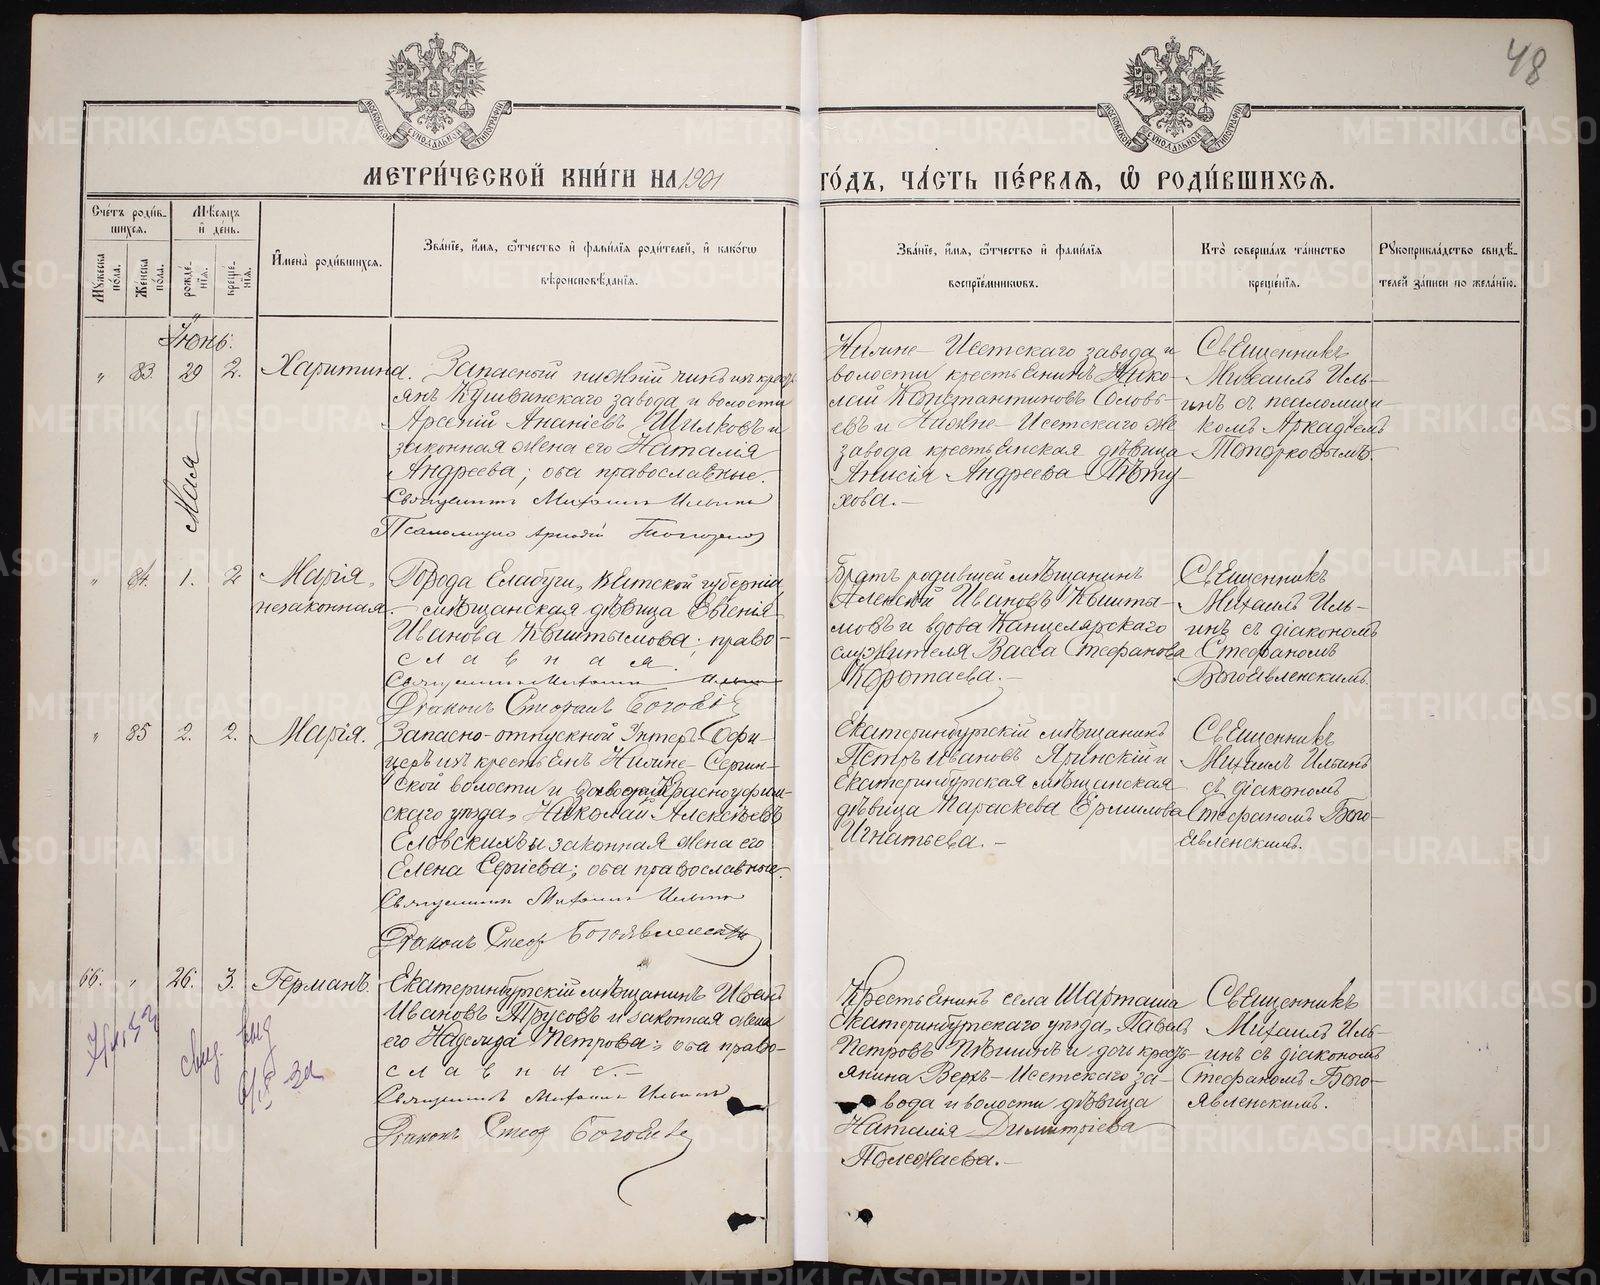 48
МЕТРИ́ЧЕСКОЙ КНИ́ГИ НА 1901 ГО́ДЪ, ЧА́СТЬ ПЕ́РВАЯ, Ѿ РОДИ́ВШИХСЯ.
Сче́тъ роди́вшихся.
Мѣ́сяцъ и де́нь.
Му́жеска по́ла.
Же́нска по́ла.
рожде́нїя.
креще́нїя.
Имена̀ роди́вшихся.
Зва́нїе, и́мя, ѻ҆́тчество и фами́лїя роди́телей, и како́гѡ
вѣроисповѣ́данїя.
Зва́нїе, и́мя, ѻ҆́тчество и фами́лїя
воспрїе́мниковъ.
Кто̀ соверша́лъ та́инство
креще́нїя.
Рꙋкоприкла́дство свидѣ́-
телей за́писи по жела́нїю.
Іюнь:
Мая
„ 83. 29 2. Харитина.
Запасный нижній чинъ изъ кресть-
янъ Кушвинскаго завода и волости
Арсеній Ананіевъ Шилковъ и
законная жена его Наталія
Андреева; оба православные.
Священникъ Михаилъ Ильинъ
Псаломщикъ Аркадій Топорковъ
Нижне-Исетскаго завода и
волости крестьянинъ Нико-
лай Константиновъ Соловь-
евъ и Нижне-Исетскаго же
завода крестьянская дѣвица
Анисія Андреева Пѣту-
хова.-
Священникъ
Михаилъ Иль-
инъ съ псаломщи-
комъ Аркадіемъ
Топорковымъ.
„ 84. 1. 2 Марія,
незаконная.
Города Елабуги, Вятской губерніи,
мѣщанская дѣвица Евгенія
Иванова Кыштымова; право-
славная.
Священникъ Михаилъ Ильинъ
Діаконъ Стефанъ Богоявл
Братъ родившей мѣщанинъ
Алексѣй Ивановъ Кышты-
мовъ и вдова Канцелярскаго
служителя Васса Стефанова
Коротаева.-
Священникъ
Михаилъ Иль-
инъ съ діакономъ
Стефаномъ
Богоявленскимъ.
„ 85 2. 2. Марія.
Запасно-отпускной Унтеръ-Офи-
церъ изъ крестьянъ Нижне-Сергин-
ской волости и завода Красноуфим-
скаго уѣзда, Николай Алексѣевъ
Еловскихъ и законная жена его
Елена Сергіева; оба православные.
Священникъ Михаилъ Ильинъ
Діаконъ Стеф Богоявленскій
Екатеринбургскій мѣщанинъ
Петръ Ивановъ Яринскій и
Екатеринбургская мѣщанская
дѣвица Параскева Ермилова
Игнатьева.-
Священникъ
Михаилъ Ильинъ
съ діакономъ
Стефаномъ Бого-
явленскимъ.
66. „ 26. 3. Германъ.
Екатеринбургскій мѣщанинъ Иванъ
Ивановъ Трусовъ и законная жена
его Надежда Петрова; оба право-
славные.-
Священникъ Михаилъ Ильинъ
Діаконъ Стеф Богоявле
Крестьянинъ села Шарташа
Екатеринбургскаго уѣзда, Павелъ
Петровъ Пѣшинъ и дочь кресть-
янина Верхъ-Исетскаго за-
вода и волости дѣвица
Наталія Димитріева
Полежаева.-
Священникъ
Михаилъ Иль-
инъ съ діакономъ
Стефаномъ Бого-
явленскимъ.
METRIKI.GASO-URAL.RU